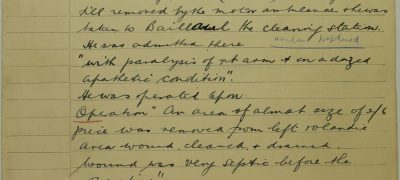 till removed by the motor ambulance & he was
taken to Bailleul the cleaning station.
He was admitted there
"with paralysis of rt arm & in a dazed
apathetic condition".
He was operated upon
Opeation" An area of almost size of 2/6
piece was removed from left rolandic
area wound, cleaned, & drained.
wound was very septic before the